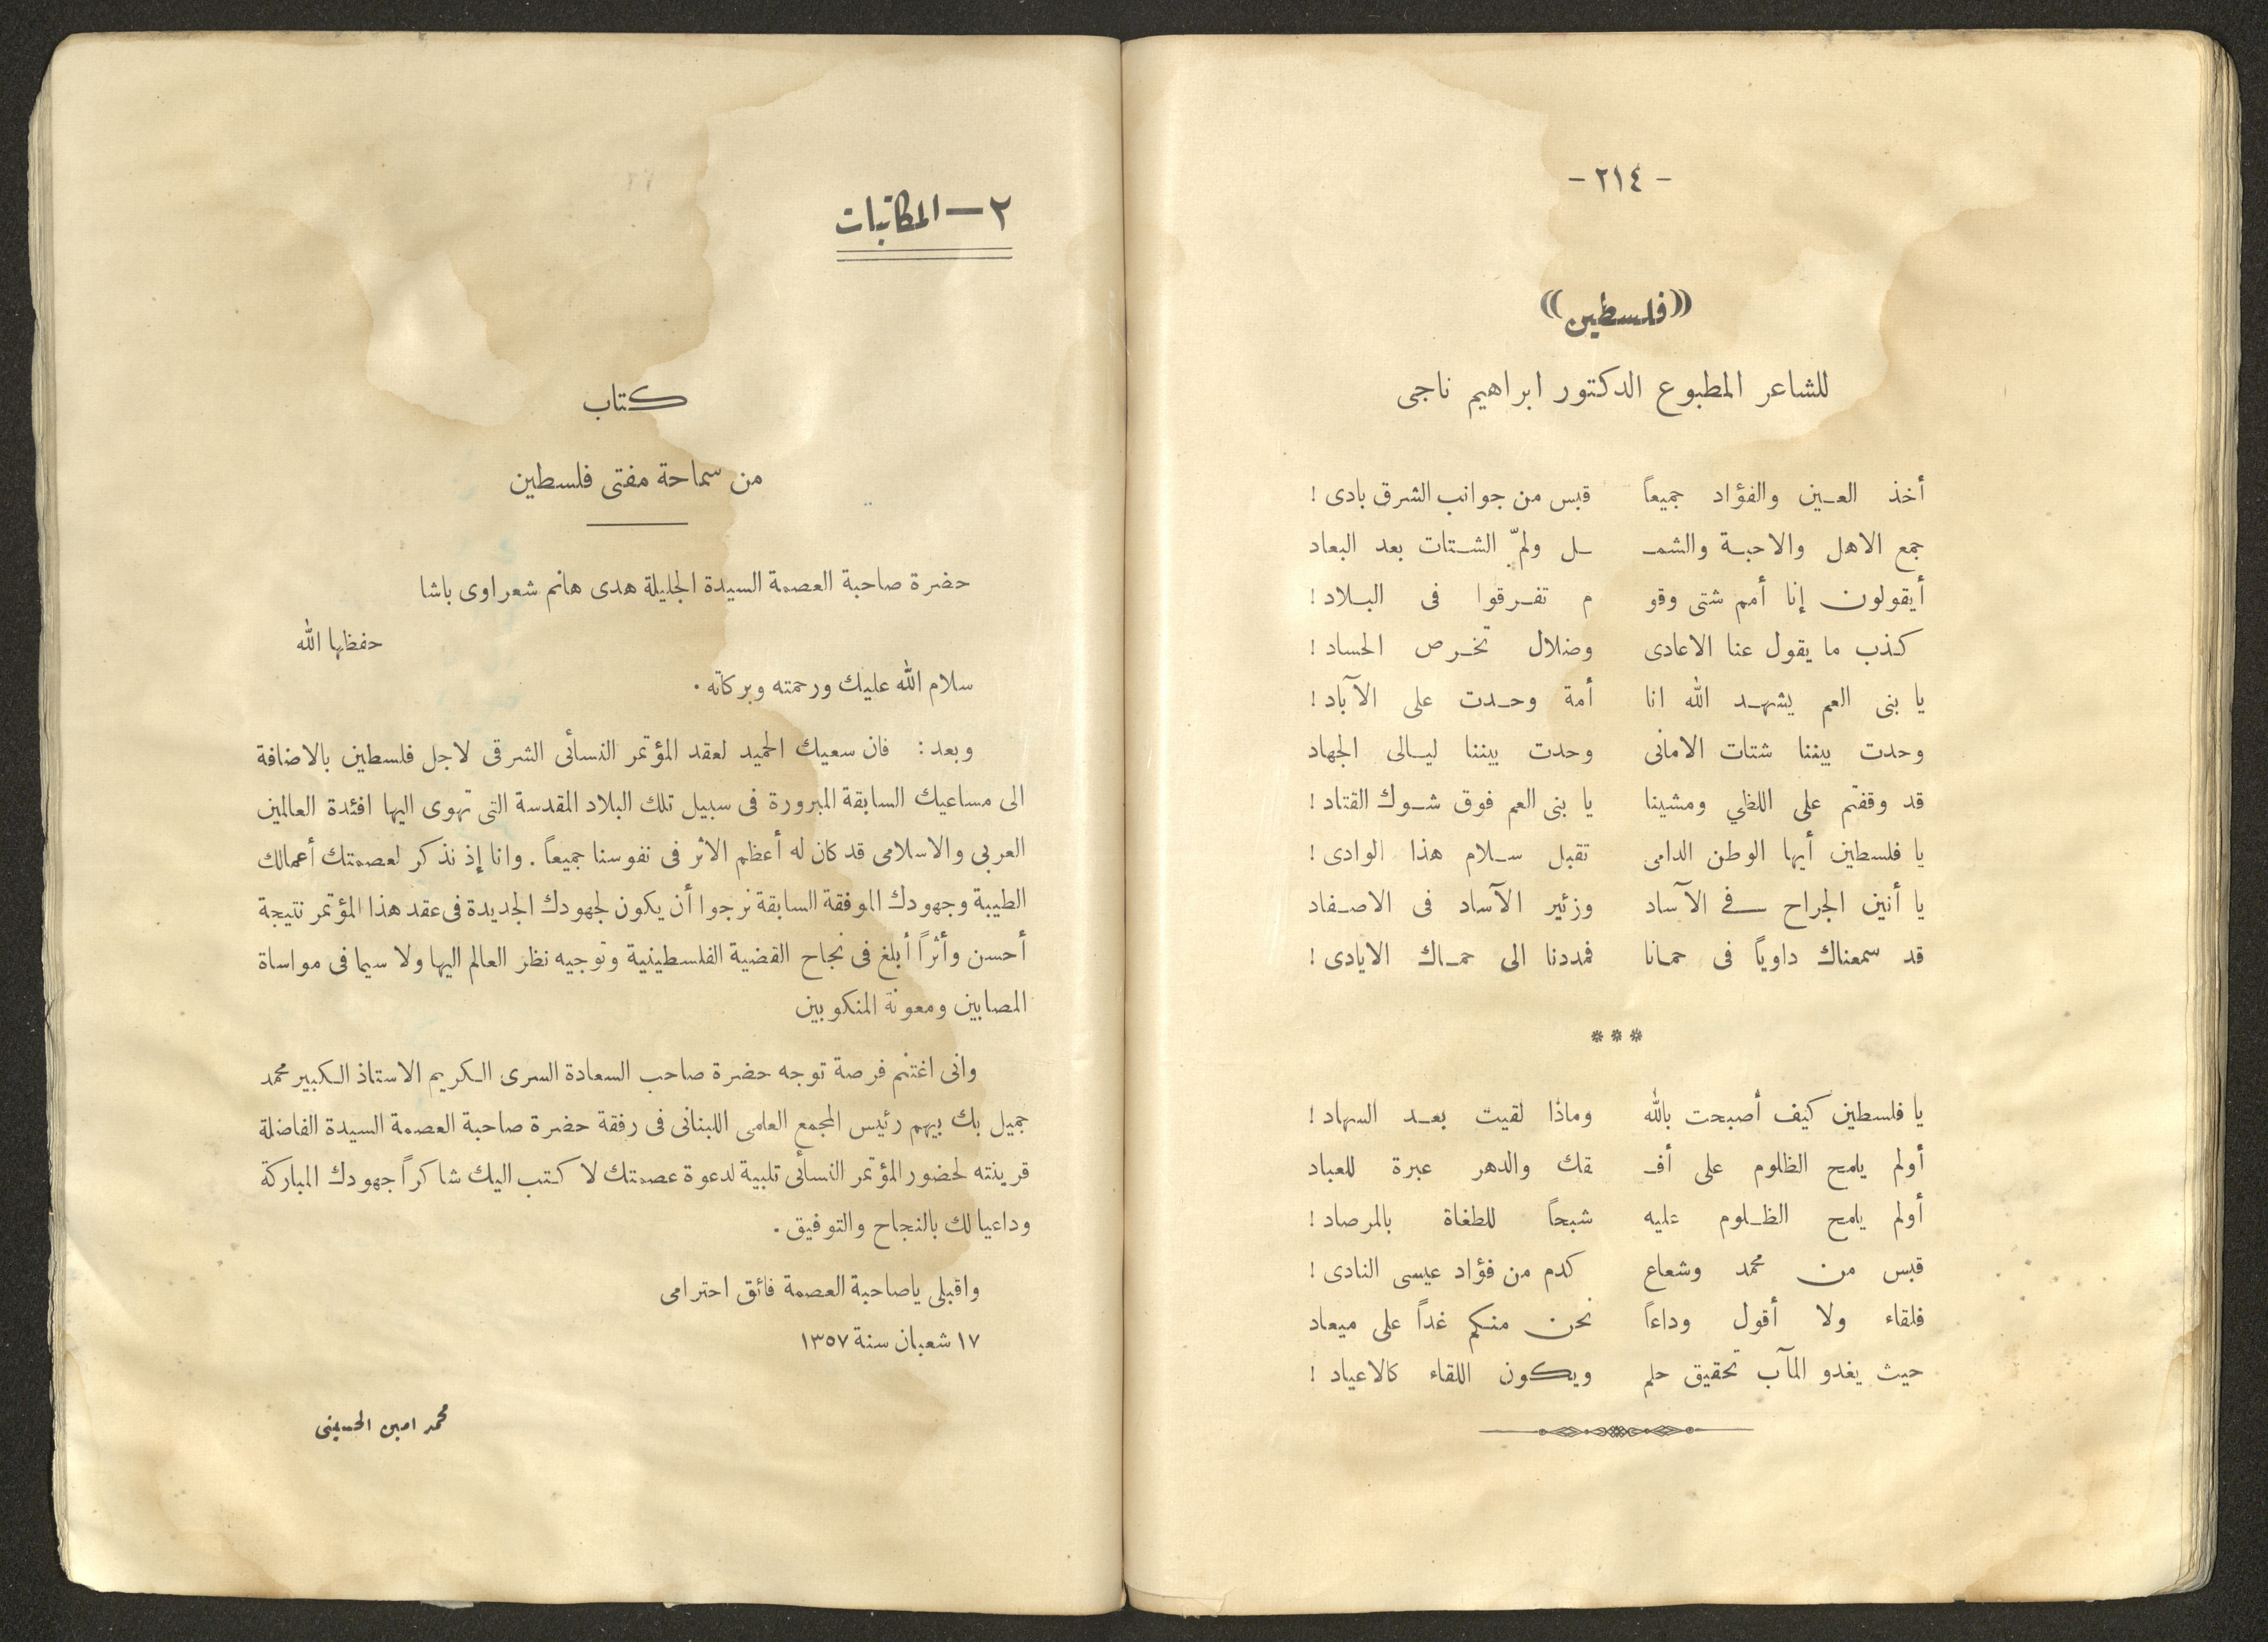 - ٢١٤ -
((فلسطين))
للشاعر المطبوع الدكتور ابراهيم ناجى
أخذ العـين والفؤاد جميعاً قبس من جوانب الشرق بادى !
جمع الاهل والاحبـة والشمـ ـل ولمّ الشـتات بعد البعاد
أيقولون إنا أمم شتى وقو م تفـرقوا فى البـلاد !
كذب ما يقول عنا الاعادى وضلال تخـرص الحساد !
يا بنى العم يشهـد الله انا أمة وحـدت على الآباد !
وحدت بيننا شتات الامانى وحدت بيننا ليـالى الجهاد
قد وقفتم على اللظي ومشينا يا بنى العم فوق شـوك القتاد !
يا فلسطين أيها الوطن الدامى تقبل سـلام هذا الوادى !
يا أنين الجراح فى الآساد وزئير الآساد فى الاصـفاد
قد سمعناك داوياً فى حمانا فمددنا الى حمـاك الايادى !
***
يا فلسطين كيف أصبحت بالله وماذا لقيت بعـد السهاد !
أولم يلمح الظلوم على أفـ ـقك والدهر عبرة للعباد
أولم يلمح الظـلوم عليه شبحاً للطغاة بالمرصاد !
قبس من محمد وشعاع كدم من فؤاد عيسى النادى !
فلقاء ولا أقول وداعاً نحن منكم غداً على ميعاد
حيث يغدو المآب تحقيق حلم ويكون اللقاء كالاعياد !
٢ — المكاتبات
كتاب
من سماحة مفتى فلسطين
حضرة صاحبة العصمة السيدة الجليلة هدى هانم شعراوى باشا
حفظها الله
سلام الله عليك ورحمته وبركاته .
وبعد : فان سعيك الحميد لعقد المؤتمر النسأئى الشرقى لاجل فلسطين بالاضافة
الى مساعيك السابقة المبرورة فى سبيل تلك البلاد المقدسة التى تهوى اليها افئدة العالمين
العربى والاسلامى قد كان له أعظم الاثر فى نفوسنا جميعاً . وانا إذ نذكر لعصمتك أعمالك
الطيبة وجهودك الموفقة السابقة نرجوا أن يكون لجهودك الجديدة فى عقد هذا المؤتمر نتيجة
أحسن وأثراً أبلغ فى نجاح القضية الفلسطينية وتوجيه نظر العالم اليها ولا سيما فى مواساة
المصابين ومعونة المنكوبين
وانى اغتنم فرصة توجه حضرة صاحب السعادة السرى الكريم الاستاذ الكبير محمد
جميل بك بيهم رئيس المجمع العلمى اللبنانى فى رفقة حضرة صاحبة العصمة السيدة الفاضلة
قرينته لحضور المؤتمر النسأئى تلبية لدعوة عصمتك لاكتب اليك شاكراً جهودك المباركة
وداعيا لك بالنجاح والتوفيق .
واقبلى ياصاحبة العصمة فائق احترامى
١٧ شعبان سنة ١٣٥٧
محمد امين الحسينى